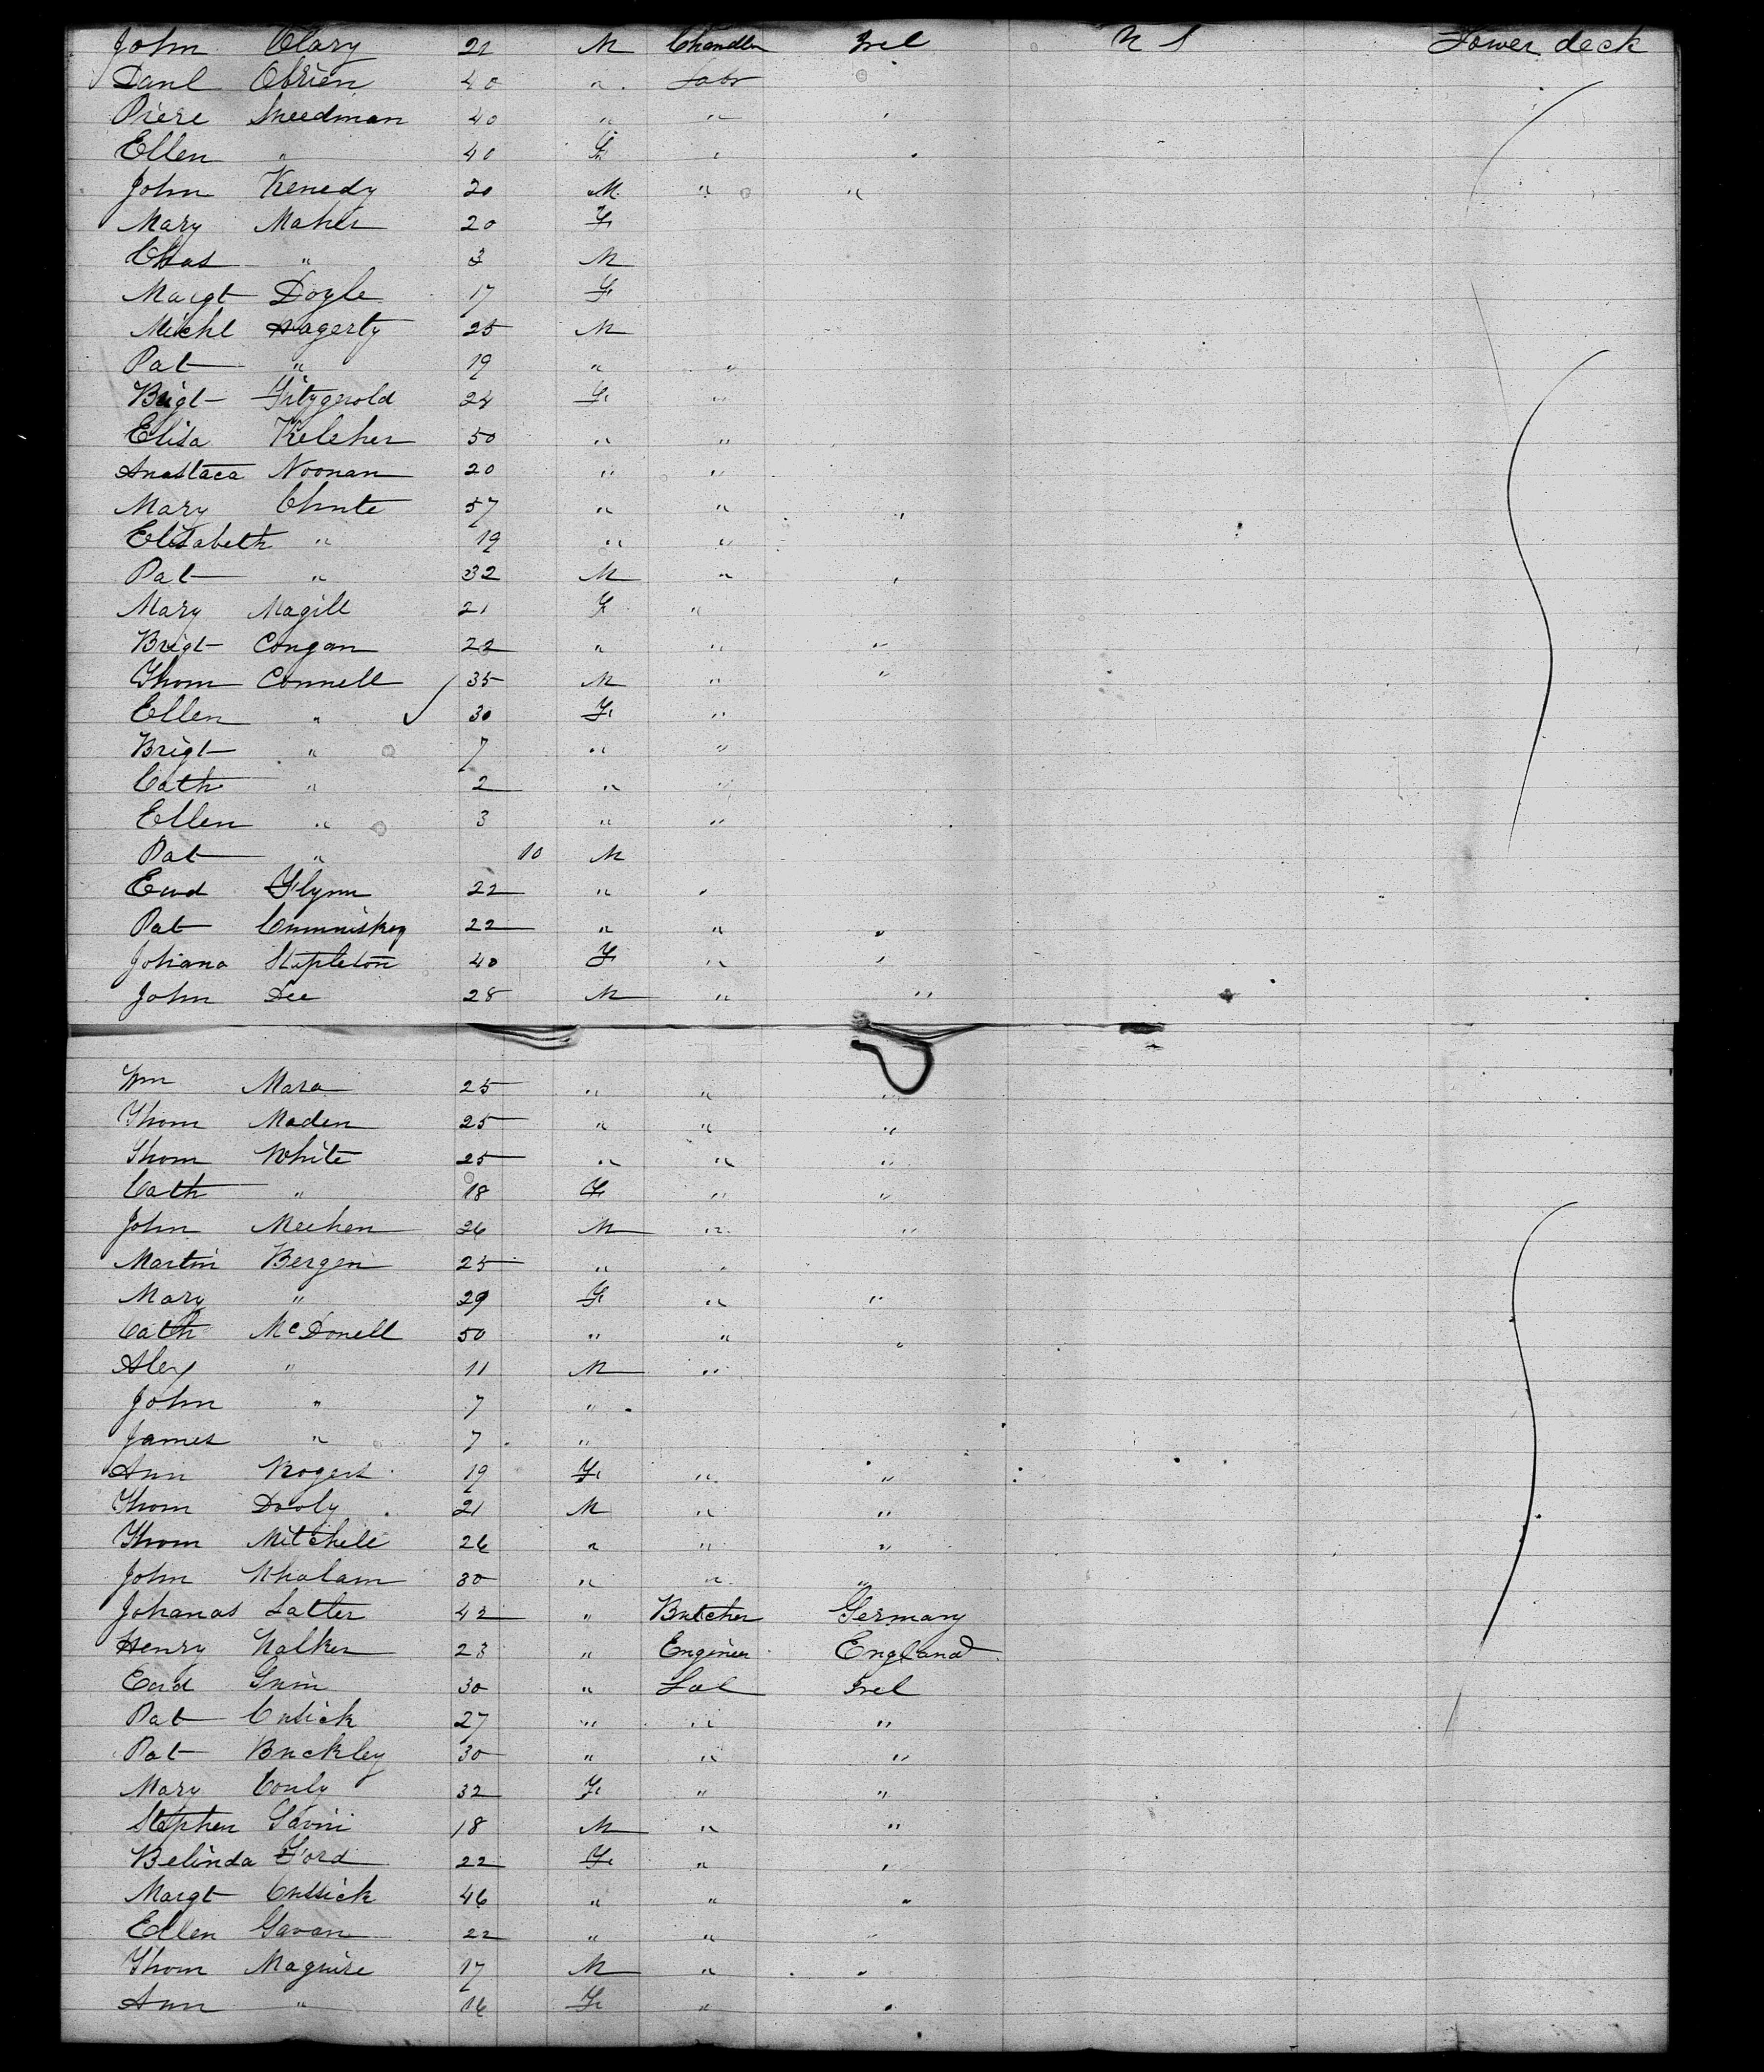 John Clary 21 M Chandler Irel U S Lower deck
Danl Obrien 40 " Labr
Piere Sneedman 40 " " "
Ellen " 40 F " "
John Kenedy 20 M " "
Mary Maher 20 F
Chas " 3 M
Margt Doyle 17 F
Michl Hagerty 25 M
Pat " 19 " "
Brigt Fitzgerold 24 F "
Elisa Keleher 50 " "
Anastaca Noonan 20 " "
Mary Chute 57 " " "
Elisabeth " 19 " "
Pat " 32 M " "
Mary Magill 21 F "
Brigt Congan 22 " " "
Thom Connell 35 M " "
Ellen " 30 F "
Brigt " 7 " "
Cath " 2 " "
Ellen " 3 " "
Pat " 10 M
Ewd Flynn 22 " "
Pat Cummiskey 22 " " "
Johana Stapleton 40 F " "
John Dee 28 M " "
Wm Mara 25 " " "
Thom Maden 25 " " "
Thom White 25 " " "
Cath " 18 F " "
John Meehan 26 M " "
Martin Bergin 25 " "
Mary " 29 F " "
Cath McDonell 50 " " "
Alex " 11 M "
John " 7 "
James " 7 "
Ann Rogers 19 F " "
Thom Dooly 21 M " "
Thom Mitchell 26 " " "
John Whalam 30 " " "
Johanas Latter 42 " Butcher Germany
Henry Walker 23 " Engineer England
Ewd 30 " Lab Irel
Pat Cusick 27 " " "
Pat Buckley 30 " " "
Mary Conly 32 F " "
Stephen Gavin 18 M " "
Belinda Ford 22 F " "
Margt Cussick 46 " " "
Ellen Gavan 22 " " "
Thom Maguire 17 M " "
Ann " 16 F " "